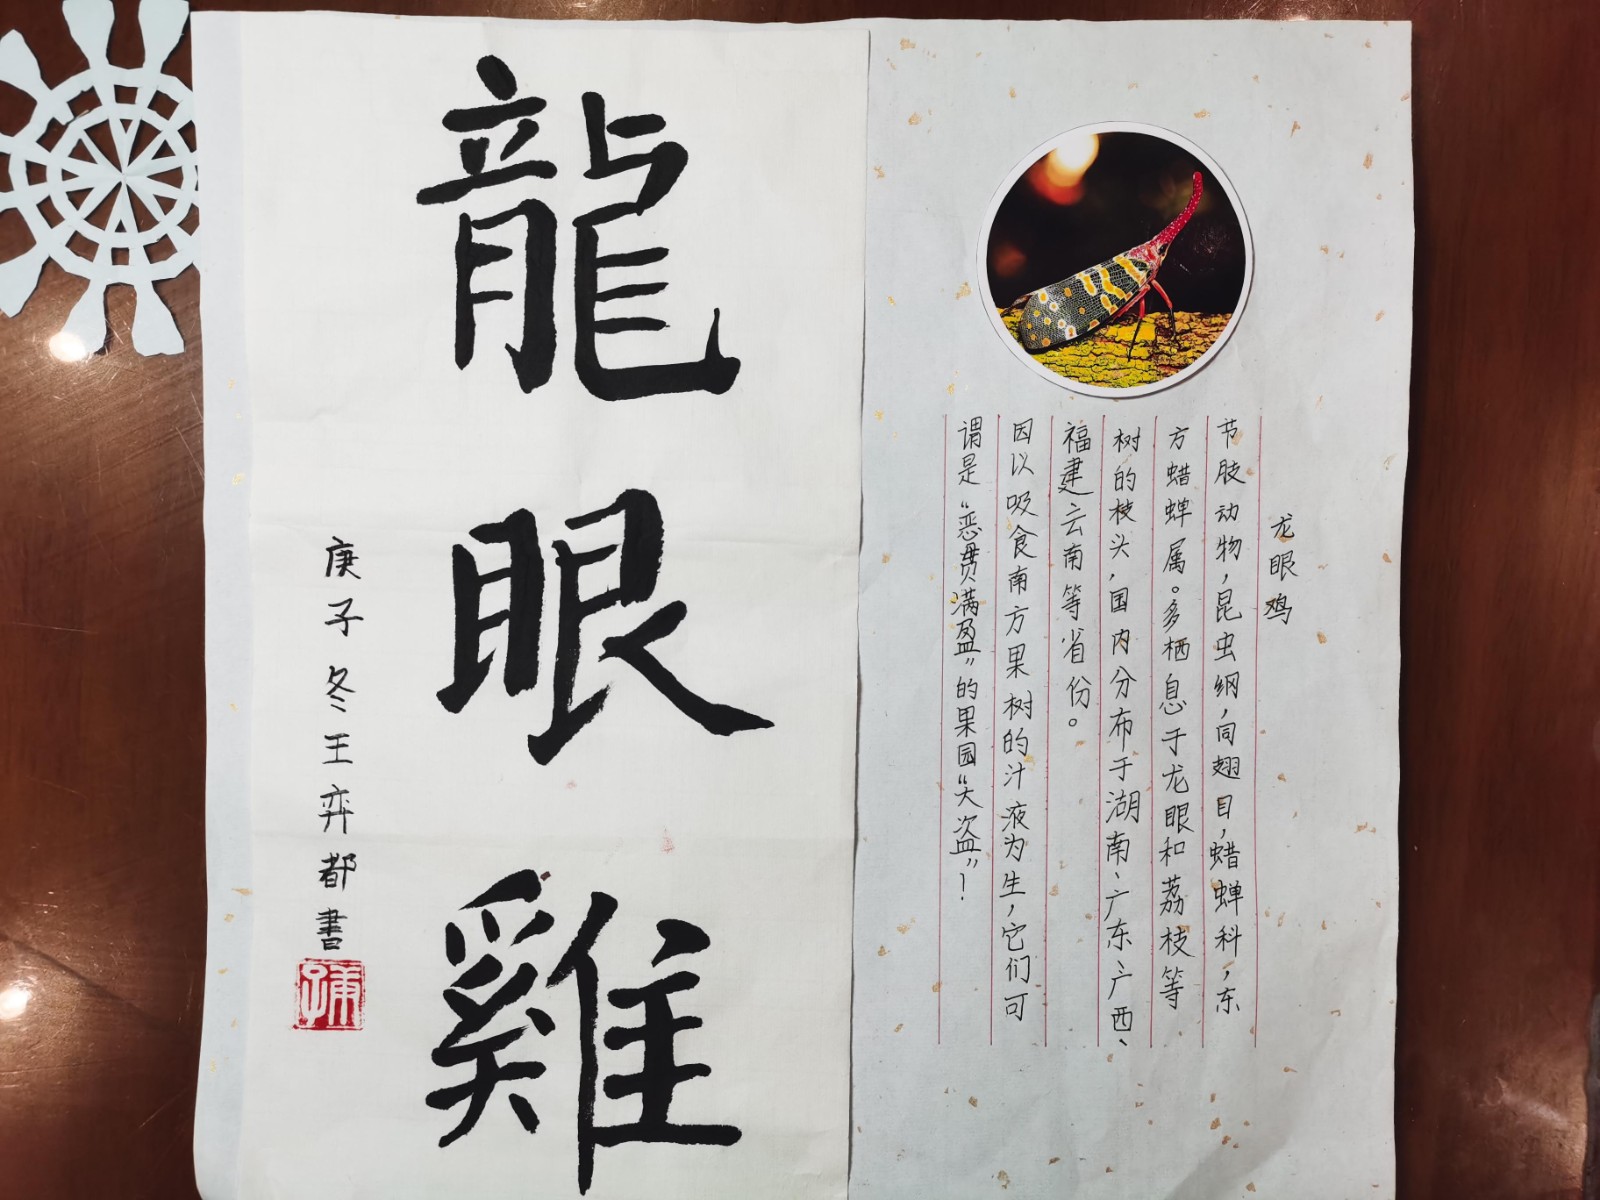 龙眼鸡
节肢动物，昆虫纲，同翅目，蜡蝉科，东
方蜡蝉属。多栖息于龙眼和荔枝等
树的枝头，国内分布于湖南、广东、广西、
福建云南等省份。
因以吸食南方果树的汁液为生，它们可
谓是“恶贯满盈”的果园“大盗”！
龍眼雞
庚子冬王弈都書